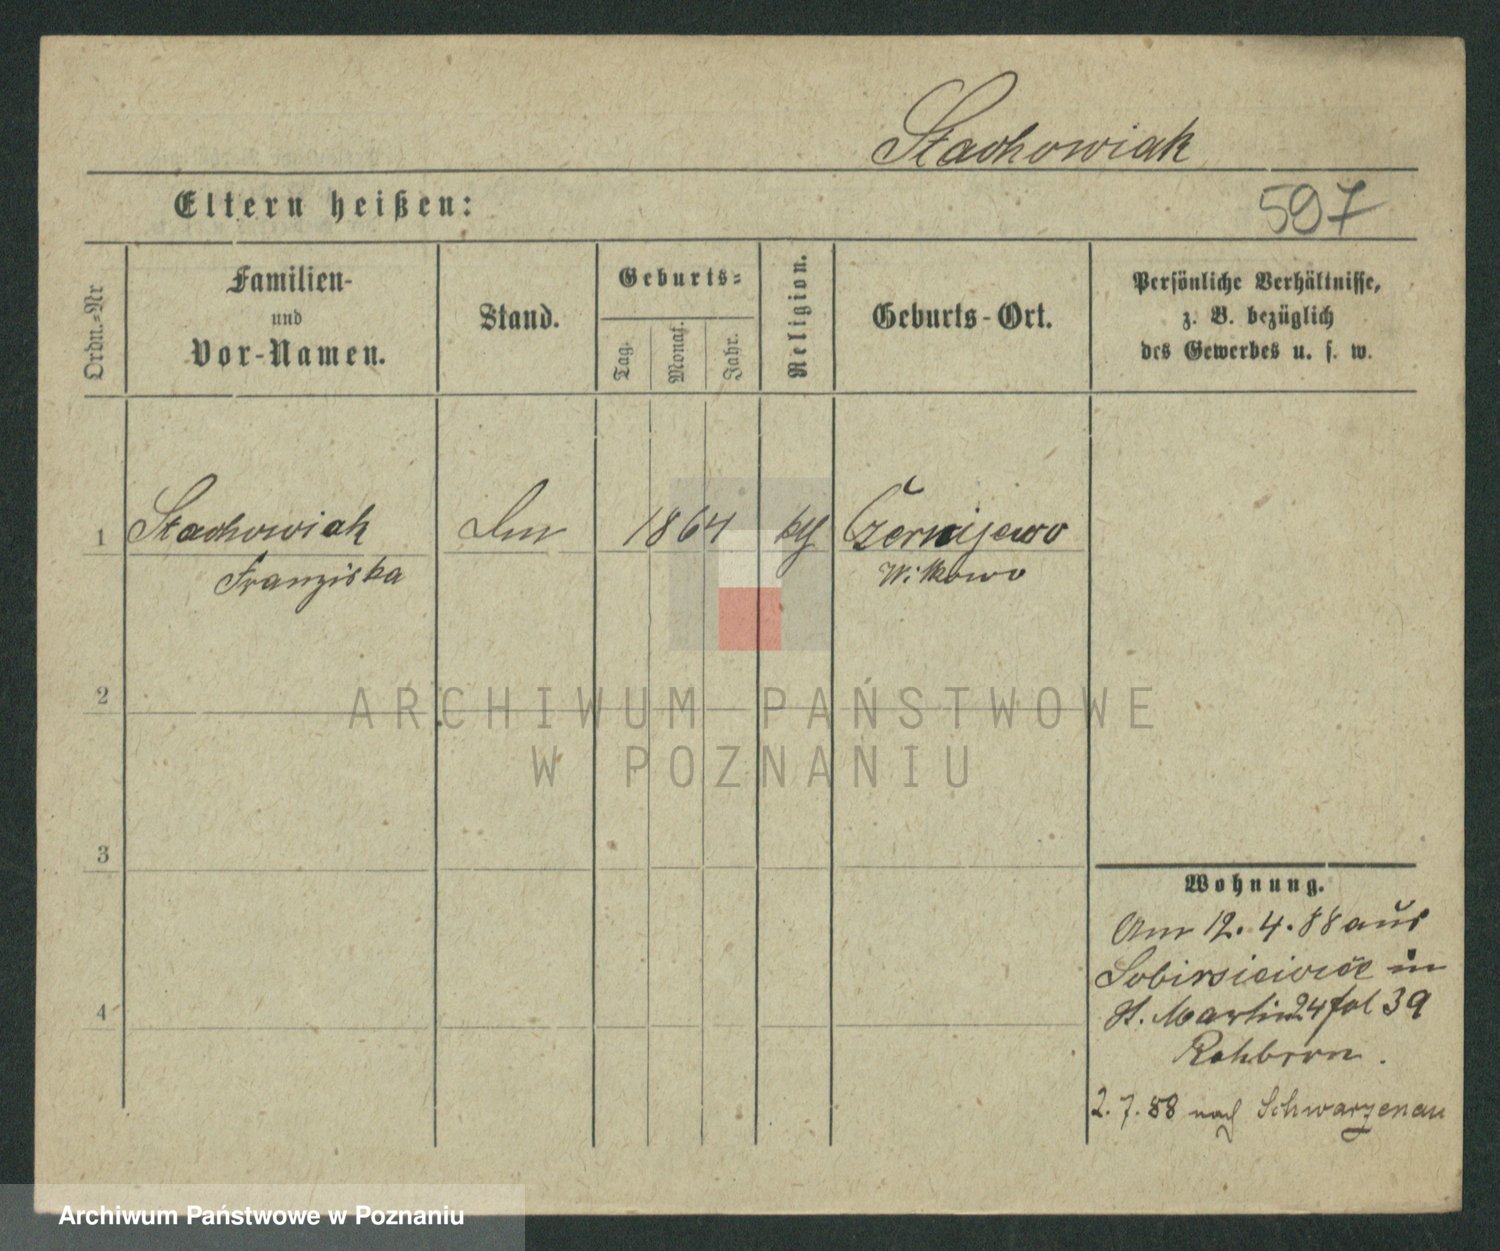 Stachowiak
Eltern heißen:
597
Ordn.-Nr
Familien-
und
Vor-Namen.
Stand.
Geburts-
Tag.
Monat.
Jahr.
Religion.
Geburts-Ort.
Persönliche Verhältnisse,
z. B. bezüglich
des Gewerbes u. s. w.
1
Stachowiak
Franziska
1864
Czernijewo
Witkowo
2
ARCHIWUM PAŃSTWOWE
W POZNANIU
3
4
Wohnung.
Am 12. 4. 88 aus
in
St. Martin 24 fol 39
2. 7. 88 nach Schwarzenau
Archiwum Państwowe w Poznaniu